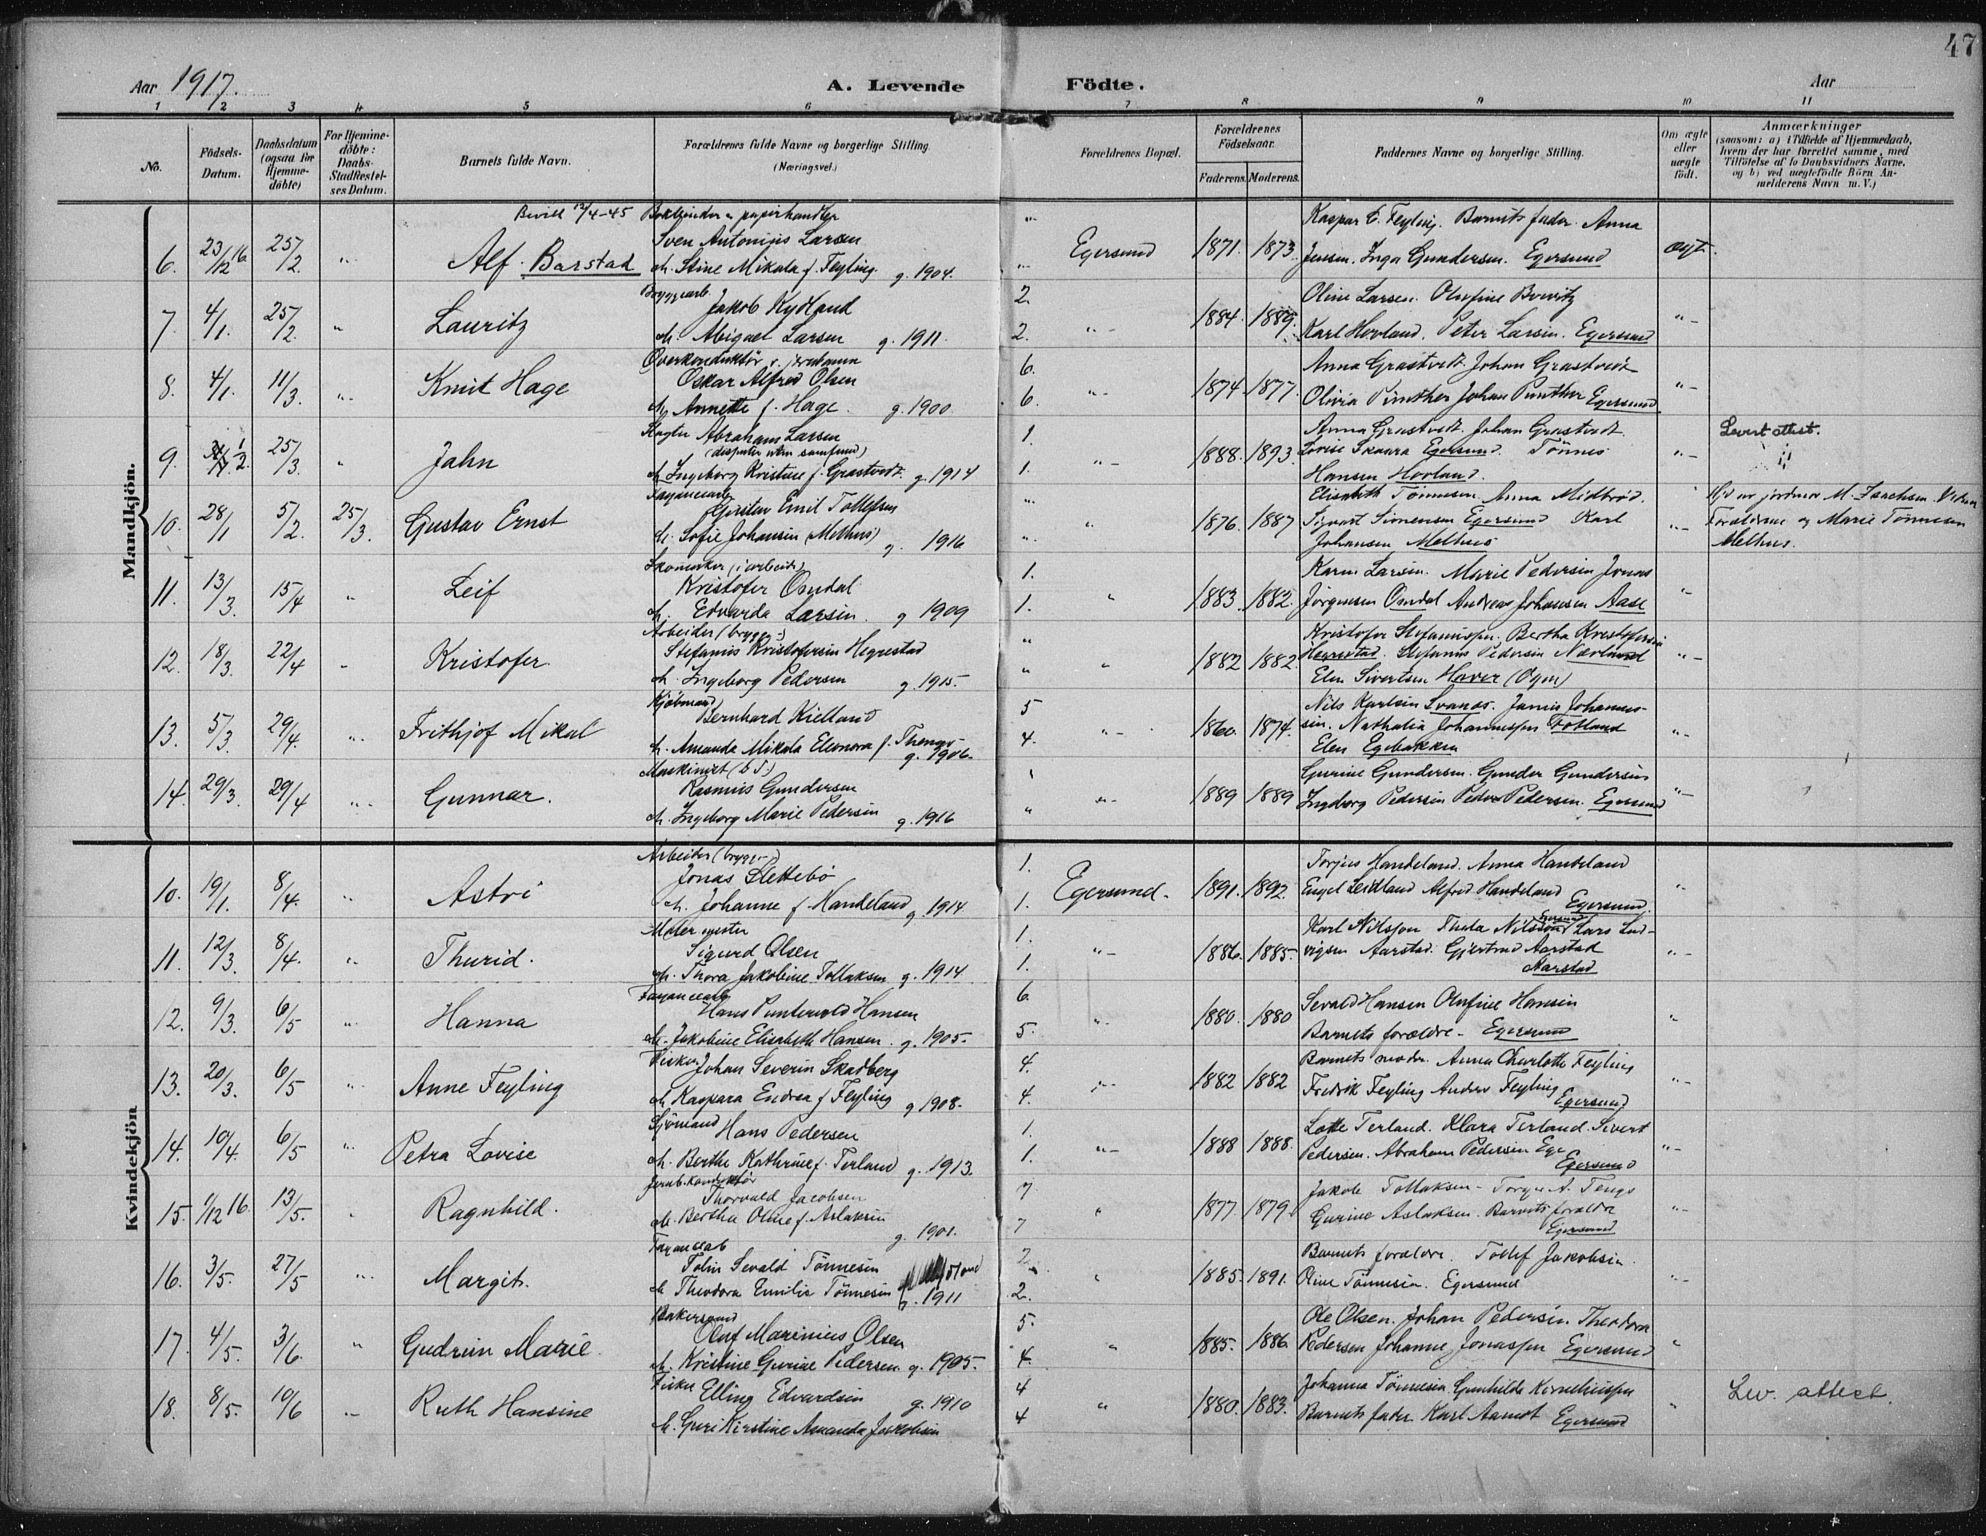 47
Aar 1917. A. Levende Födte. Aar
1 2 3 4 5 6 7 8 9 10 11
No. Födsels-Datum. Daabsdatum (ogsaa for Hjemmedøbte) For Hjemmedöbte: Daabs-Stadfæstelses Datum. Barnets fulde Navn. Forældrenes fulde Navne og borgerlige Stilling. (Næringsvei.) Forældrenes Bopæl. Forældrenes Födselsaar. Faderens. Moderens. Faddernes Navne og borgerlige Stilling. Om ægte eller uægte födt. Anmærkninger (saasom: a) i Tilfælde af Hjemmedaab, hvem der har forrettet samme, med Tilföielse af to Daabsvidners Navne, og b) ved uægtefödte Börn Anmelderens Navn m. V.)
Mandkjön.
Bevill 12/4-45 Bokbinder & papirhandler " Kaspar E. Feyling. Barnets fader. Anna
6. 23/12 16. 25/2. " Alf. Barstad Sven Antonius Larsen
M. Stine Mikala f. Feyling. g. 1904. " Egersund 1871. 1873. Jensen. Inga Gundersen. Egersund ægte.
Bryggearb. Jakob Kydland 2. Oline Larsen. Olufine
7. 4/1. 25/2. " Lauritz M. Abigael Larsen g. 1911. 2. " 1884. 1885. Karl Hovland. Peter Larsen. Egersund "
Overkonduktør v. jernbanen 6. Anna Grastvedt. Johan Grastvedt
8. 4/1. 11/3. " Knut Hage Oskar Alfred Olsen
M. Annette f. Hage. g. 1900. 6. " 1874. 1877. Olivia Johan Egersund "
Slagter Abraham Larsen 1. Anna Grastvedt. Johan Grastvedt. Levert attest.
9. 25/3. " Jahn M. Ingeborg Kristine f. Grastvedt. g. 1914 1. " 1888. 1893. Lovise Skaara Egersund. Tönnes "
Hansen Hovland.
Fayancearb. Gustav Emil Tollefsen " Elisabeth Tönnesen Anna Midbrød. Hjd av jordmor M. Isachsen.
10. 28/1. 5/2. 25/3. Gustav Ernst M. Sofie Johansen (Melhus) g. 1916 " 1876. 1887 Sigvart Simensen Egersund Karl " Forældrene og Marie Tönnesen
Johansen Melhus Melhus.
Skomaker (i arbeide) 1. Karen Larsen. Marie Pedersen Jonas
11. 13/3. 15/4 " Leif Kristofer Omdal
M. Edvarda Larsen. g 1909 1. " 1883. 1882. Jörgensen Omdal Andreas Johansen Aase "
Arbeider (brygge-) " Kristofer Stefanussen. Bertha Kristofersen
12. 18/3. 22/4 " Kristofer Stefanus Kristofersen Hegrestad
M. Ingeborg Pedersen g. 1915. " 1882 1882. Hegrestad. Stefanus Pedersen Nærland "
Elen Sivertsen Haver (Ogna)
Kjöbmand Bernhard Kielland 5 Nils Karlsen Svanes. Jamis Johannes-
13. 5/3. 29/4. " Frithjof Mikal M. Amanda Mikala Eleonora f. Thengs g. 1906. 4. " 1860. 1874. sen. Nathalia Johannessen Fotland "
Elen Egebakken
Maskinist Rasmus Gundersen " Gurine Gundersen. Gunder Gundersen
14. 29/3. 29/4 " Gunnar. M. Ingeborg Marie Pedersen g. 1916 " " 1889 1889 Ingeborg Pedersen Peder Pedersen. Egersund "
Kvindekjön
Arbeider (brygge-) Jonas Slettebö 1. Torjus Handeland. Anna Handeland
10. 19/1. 8/4. " Astri M. Johanne f Handeland g. 1914 1. Egersund. 1891. 1892. Engel Leidland Alfred Handeland Egersund. "
Maler mester Sigurd Olsen 1. Karl Nilssen Thea Nilsson Egersund Lars Lud-
11. 12/3. 8/4. " Thurid. M. Thora Jakobine Tollaksen g. 1914 1. " 1886. 1885. vigsen Aarstad. Gjertrud Aarstad "
Aarstad
Fayancearb Hans Puntervold Hansen 6. Sevald Hansen Olufine Hansen
12. 9/3. 6/5 " Hanna M. Jakobine Elisabeth Hansen g. 1905. 5. " 1880. 1880 Barnets forældre. Egersund "
Fisker Johan Severin Skadberg 4. Barnets moder. Anna Charlotte Feyling
13. 20/3. 6/5 " Anne Feyling M. Kaspara Endrea f Feyling g 1908. 4. " 1882 1882 Fredrik Feyling Anders Feyling Egersund "
Sjömand Hans Pedersen 1. Lotte Terland. Klara Terland. Sivert
14. 10/4. 6/5 " Petra Lovise M. Berthe Kathrine f. Terland g. 1913. 1. " 1888 1888. Pedersen. Abraham Pedersen Ege Egersund "
Jernb.konduktör Thorvald Jacobsen 7 Jakob Tollaksen. Torger A. Tengs
15. 1/12 16. 13/5. " Ragnhild. M. Bertha Oline f. Aslaksen g. 1901. 7 " 1877. 1879. Gurine Aslaksen. Barnets forældre Egersund "
Fayancearb Tobin Sevald Tönnesen 2. Barnets forældre. Tollef Jakobsen.
16. 3/5. 27/5 " Margit. M Theodora Emilie Tönnesen g. 1911 2. " 1885. 1891. Oline Tönnesen. Egersund "
Bakersvend Oluf Marinius Olsen 5. Ole Olsen. Johan Pedersen. Theodora
17. 4/5. 3/6. " Gudrun Marie. M. Kristine Gurine Pedersen g. 1905. 4. " 1885. 1886. Pedersen Johanne Jonassen Egersund "
Fisker Elling Edvardsen g. 1910 4 Johanna Tönnesen Gunhilde Korneliussen Lev. attest.
18. 8/5. 10/6 " Ruth Hansine M. Guri Kirstine Amanda Jakobsen 4 " 1880. 1883. Barnets fader Karl Aamot Egersund "